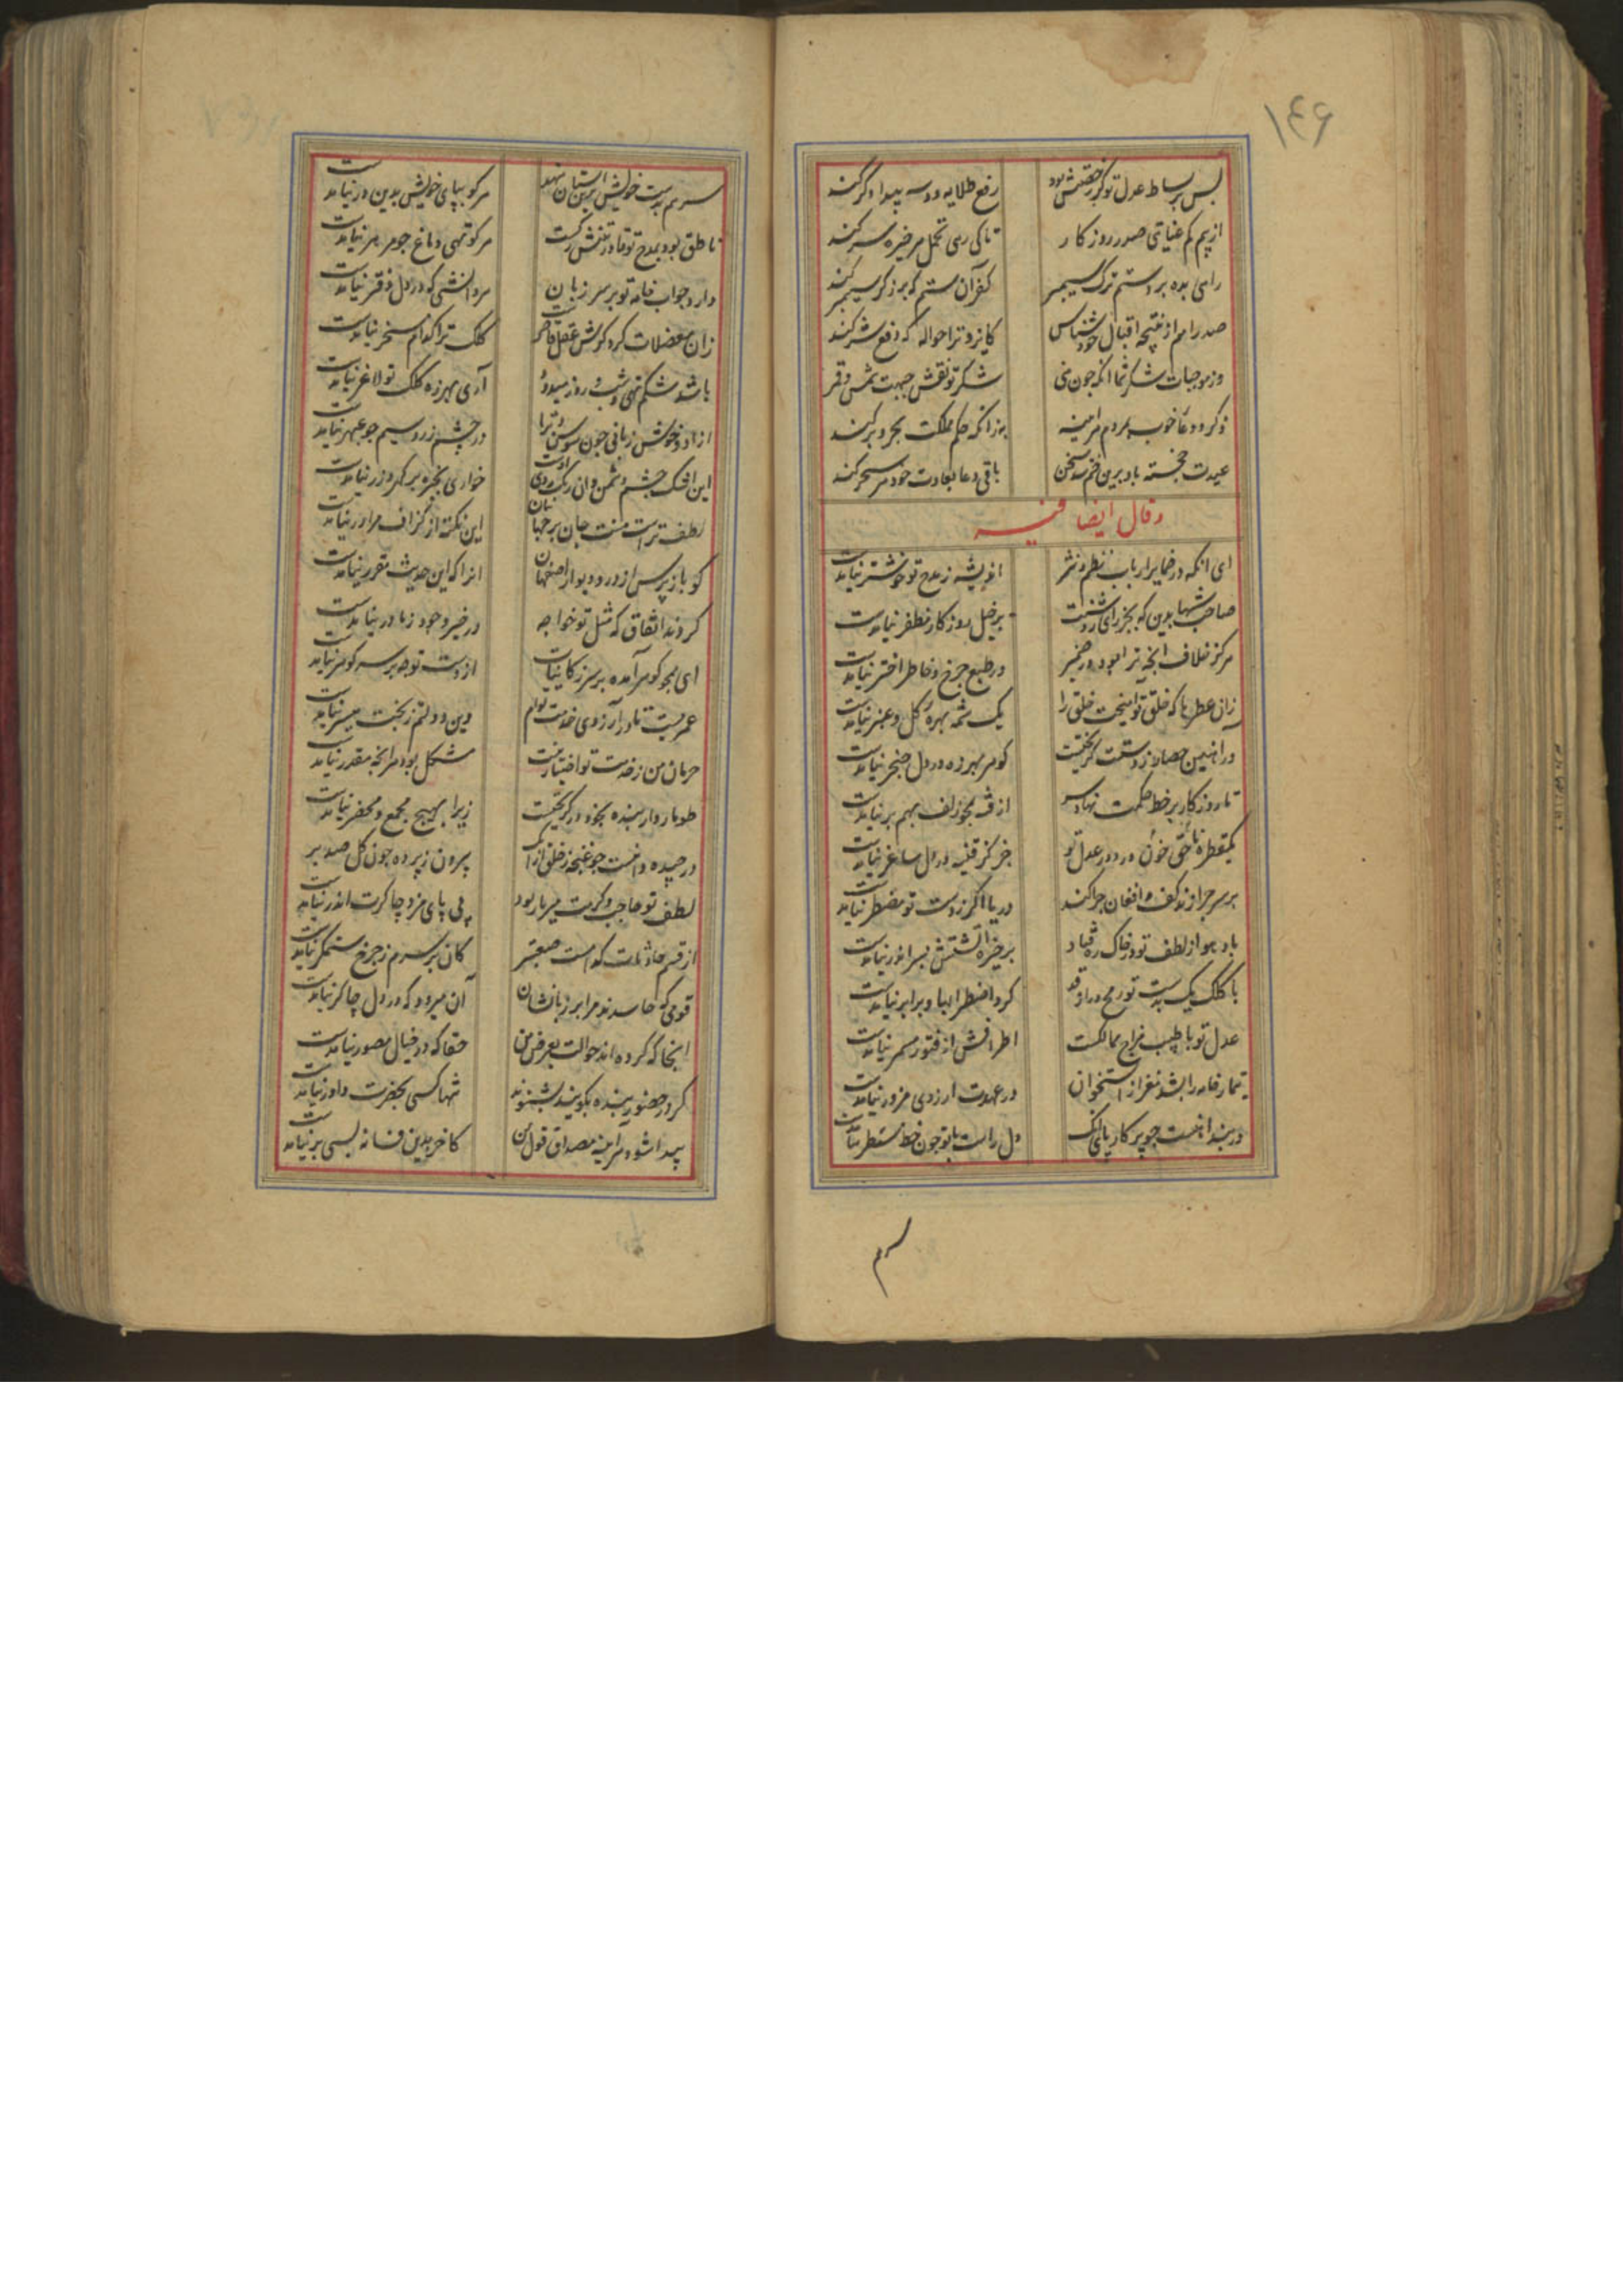 ۱۴۶
بس بر بساط عدل تو کز حقش بود رفع طلایه دو سه بیدادگر کنند
از بیم کم عنایتی صدر روزگار تا کی رهی تحمل هر خیره سر کنند
صدرا هم از نتیجه اقبال خود شناس کایزد ترا حواله که دفع شر کنند
وز موجبات شکر شما آنکه چون منی شکر تو نقش جبهت شمس و قمر کنند
به زانکه حکم مملکت بحر و بر کنند
عیدت خجسته باد برین ختم شد سخن باقی دعا بعادت خود هر سحر کنند
وقال ایضا فیه
ای آنکه در ضمایر ارباب نظم و نثر اندیشه ز مدح تو خوشتر نیامدست
صاحب شهاب دین که بجز رای روشنت بر خیل روزگار مظفر نیامدست
هرگز خلاف آنچه ترا بود در ضمیر در طبع چرخ و خاطر اختر نیامدست
زان عطرها که خلق تو آمیخت خلق را یک شمه بهره گل و عنبر نیامدست
در آهنین حصار ز دستت گریخت گوهر بهرزه در دل خنجر نیامدست
تا روزگار بر خط حکمت نهاد سر آفت بجز زلف بهم بر نیامدست
یکقطره خون ناحق در دور عدل تو جز کز قنینه در دل ساغر نیامدست
بر سر چرا زند کف و افغان چرا کند دریا اگر ز دست تو مضطر نیامدست
باد هوا ز لطف تو در خاک ره فتاد بر خیره آتشش بسر اندر نیامدست
با کلک یک بدست تو رمح دراز قد کرد اضطرابها و برابر نیامدست
عدل تو با طبیب مزاج ممالکت اطرافش از فتور مسمر نیامدست
تیمار خانه را بشد مغز از استخوان در عهدت آرزوی مزور نیامدست
در بند آنست چو پرگار پای آنک دل راست با تو چون خط مسطر نیامدست
سرم
سرهم بدست خویش برین آستان نهد هر کو بپای خویش بدین در نیامدست
ناطق بود بمدح تو تا در تنش رگست هر کو تهی دماغ چو مزمر نیامدست
دارد جواب نامه تو بر سر زبان هر دانشی که در دل دفتر نیامدست
زان معضلات کرد کزش عقل قاصر است کلک ترا کدام مسخر نیامدست
باشد شکم تهی و شب و روز میدود آری بهرزه کلک تو لاغر نیامدست
آزاد و خوش زبانی چون سوسن و ترا در چشم زر و سیم چو عبهر نیامدست
این اشک چشم دشمن و آن رنگ روی اوست خواری بخیره بر گهر و زر نیامدست
لطف تراست منت جان بر جهانیان این نکته از گزاف مرا در نیامدست
گو باز پرس از در و دیوار اصفهان آنرا که این حدیث مقرر نیامدست
کردند اتفاق که مثل تو خواجه در خیر وجود ز مادر نیامدست
ای همچو گوهر آمده بر سر ز کاینات از دست تو چه بر سر گوهر نیامدست
عمریست تا در آرزوی خدمت توام وین دولتم ز بخت میسر نیامدست
حرمان من ز خدمت تو اختیار نیست مشکل بود هر آنچه مقدر نیامدست
طوماروار بنده بخود در گریختست زیرا بهیچ مجمع و محضر نیامدست
درچیده دامنست چو غنچه ز خلق از آنک بیرون ز پرده چون گل صدبر نیامدست
لطف تو حاجب و کرمت میر بار بود بی پای مزد چاکرت اندر نیامدست
از قسم حادثات کدامست معتبر کان بر سرم ز چرخ ستمگر نیامدست
قومی که حاسدند مرا بر زبانشان آن میرود که در دل چاکر نیامدست
آنجا که کرده اند حوالت بعرض من حقا که در خیال مصور نیامدست
گر در حضور بنده بگویند بشنوند تنها کسی بحضرت داور نیامدست
پیدا شود هر آینه مصداق قول من کاخر بدین فسانه بسی بر نیامدست